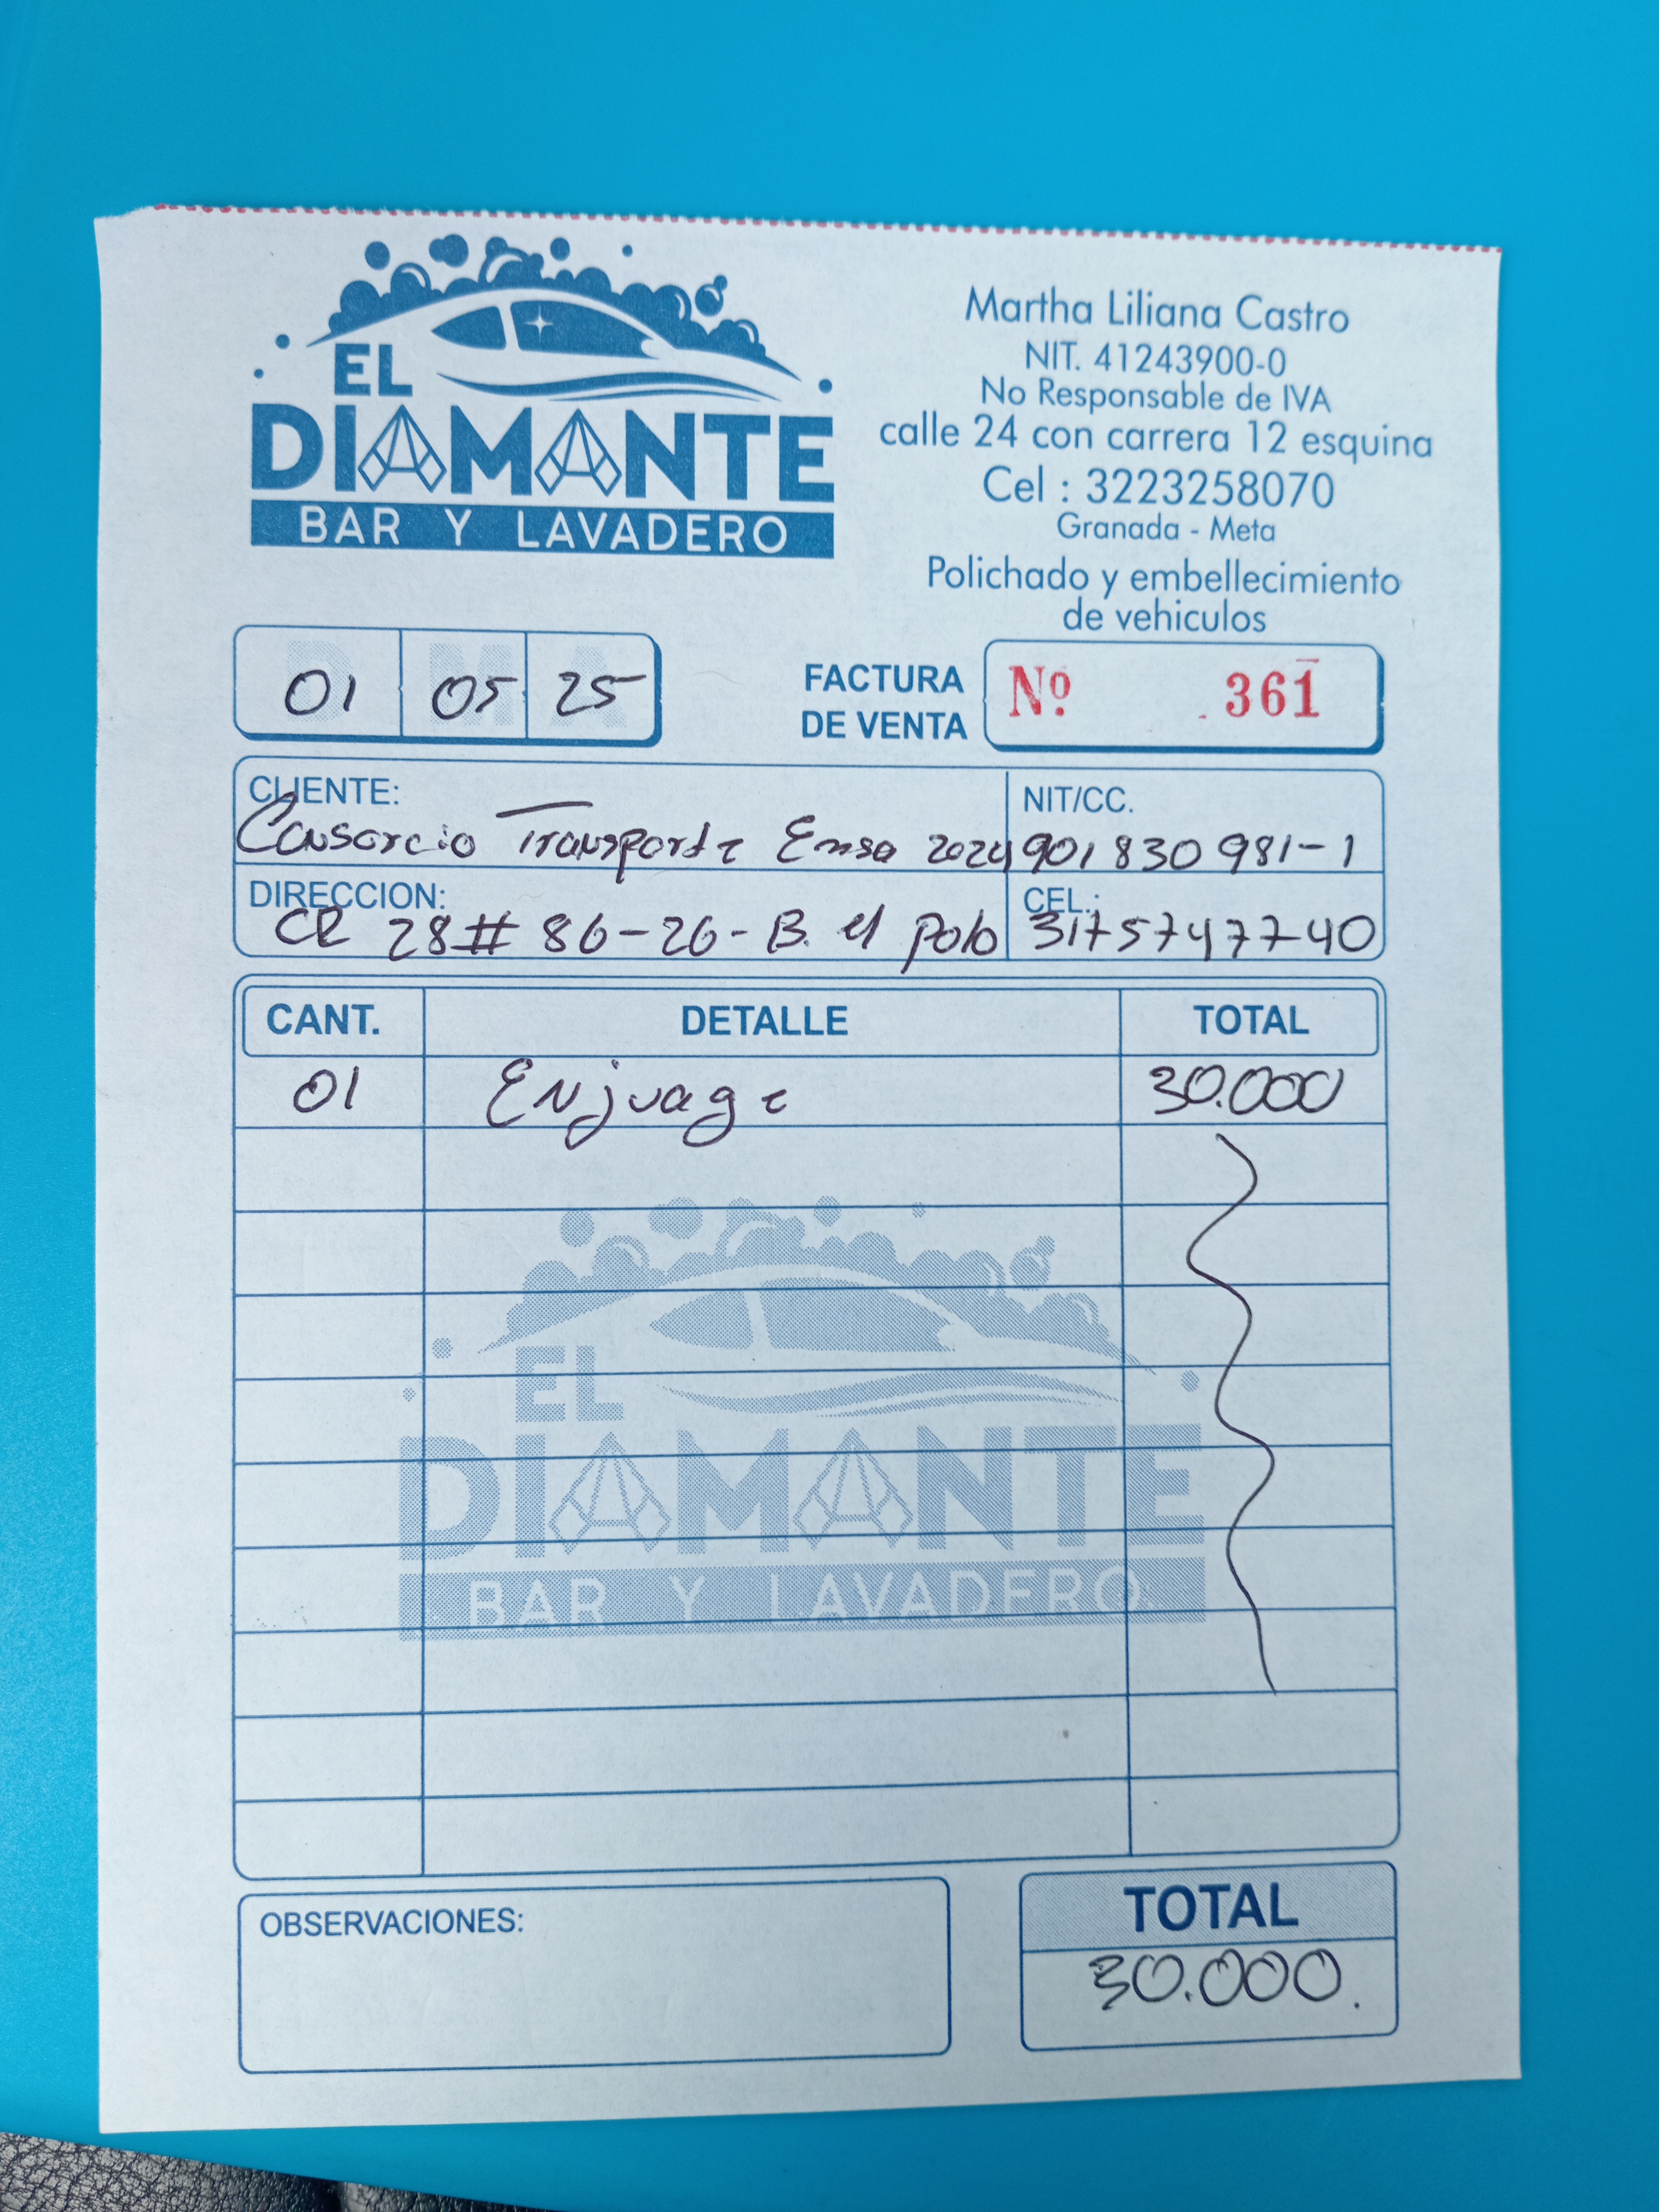 EL
DIAMANTE
BAR Y LAVADERO
Martha Liliana Castro
NIT. 41243900-0
No Responsable de IVA
calle 24 con carrera 12 esquina
Cel : 3223258070
Granada - Meta
Polichado y embellecimiento
de vehiculos
D M A
01 05 25
FACTURA
DE VENTA
Nº 361
CLIENTE:
Consorcio Transporte Emsa 2024
NIT/CC.
901830981-1
DIRECCION:
CR 28# 86-26-B. el polo
CEL.:
3175747740
CANT. DETALLE TOTAL
01 Enjuage 30.000
EL
DIAMANTE
BAR Y LAVADERO
OBSERVACIONES:
TOTAL
30.000